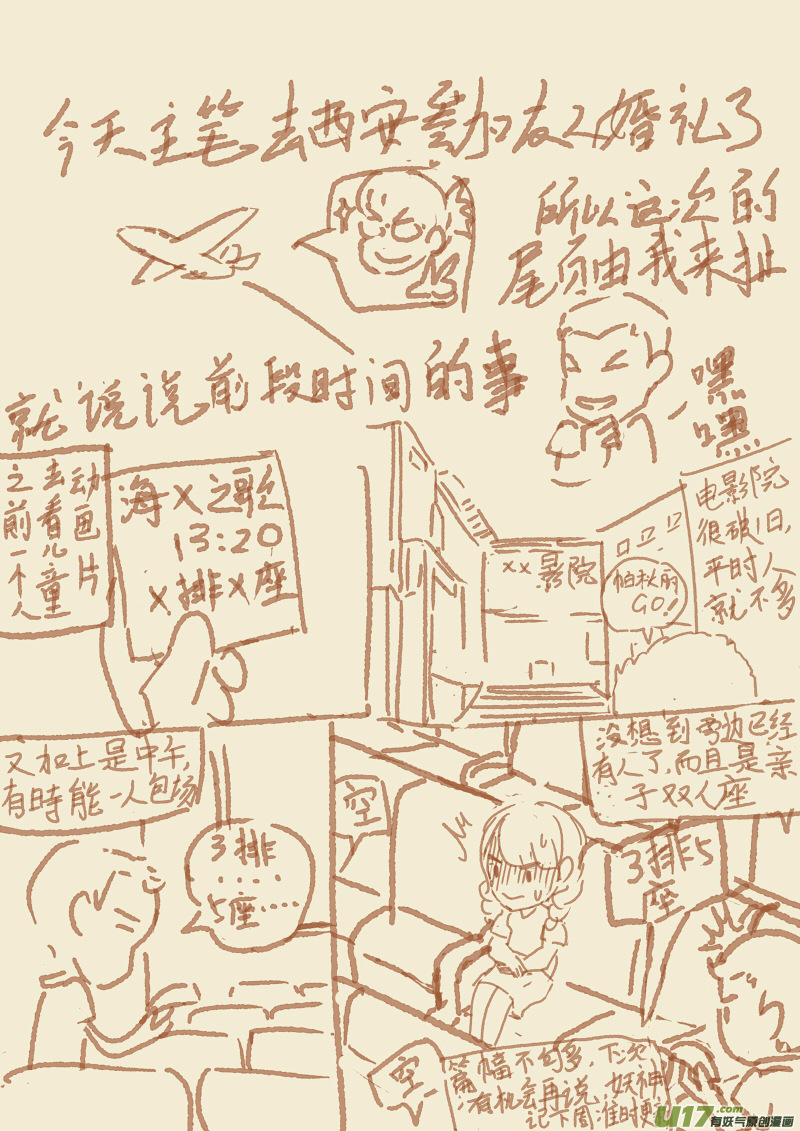 今天主笔去西安参加友人婚礼了
所以这次的
尾页由我来扯
嘿
嘿
就说说前段时间的事
动画片
去看儿童
之前一个人
海X之歌
13:20
X排X座
XX影院
帕秋丽
GO!
电影院
很破旧,
平时人
就不多
又加上是中午,
有時能一人包场
3排
....
5座……
空
没想到旁边已经
有人了,而且是亲
子双人座
3排5
座
空
篇幅不句多,下次
有机会再说,妖神
记下周准时更
U17.com
有妖气原创漫画